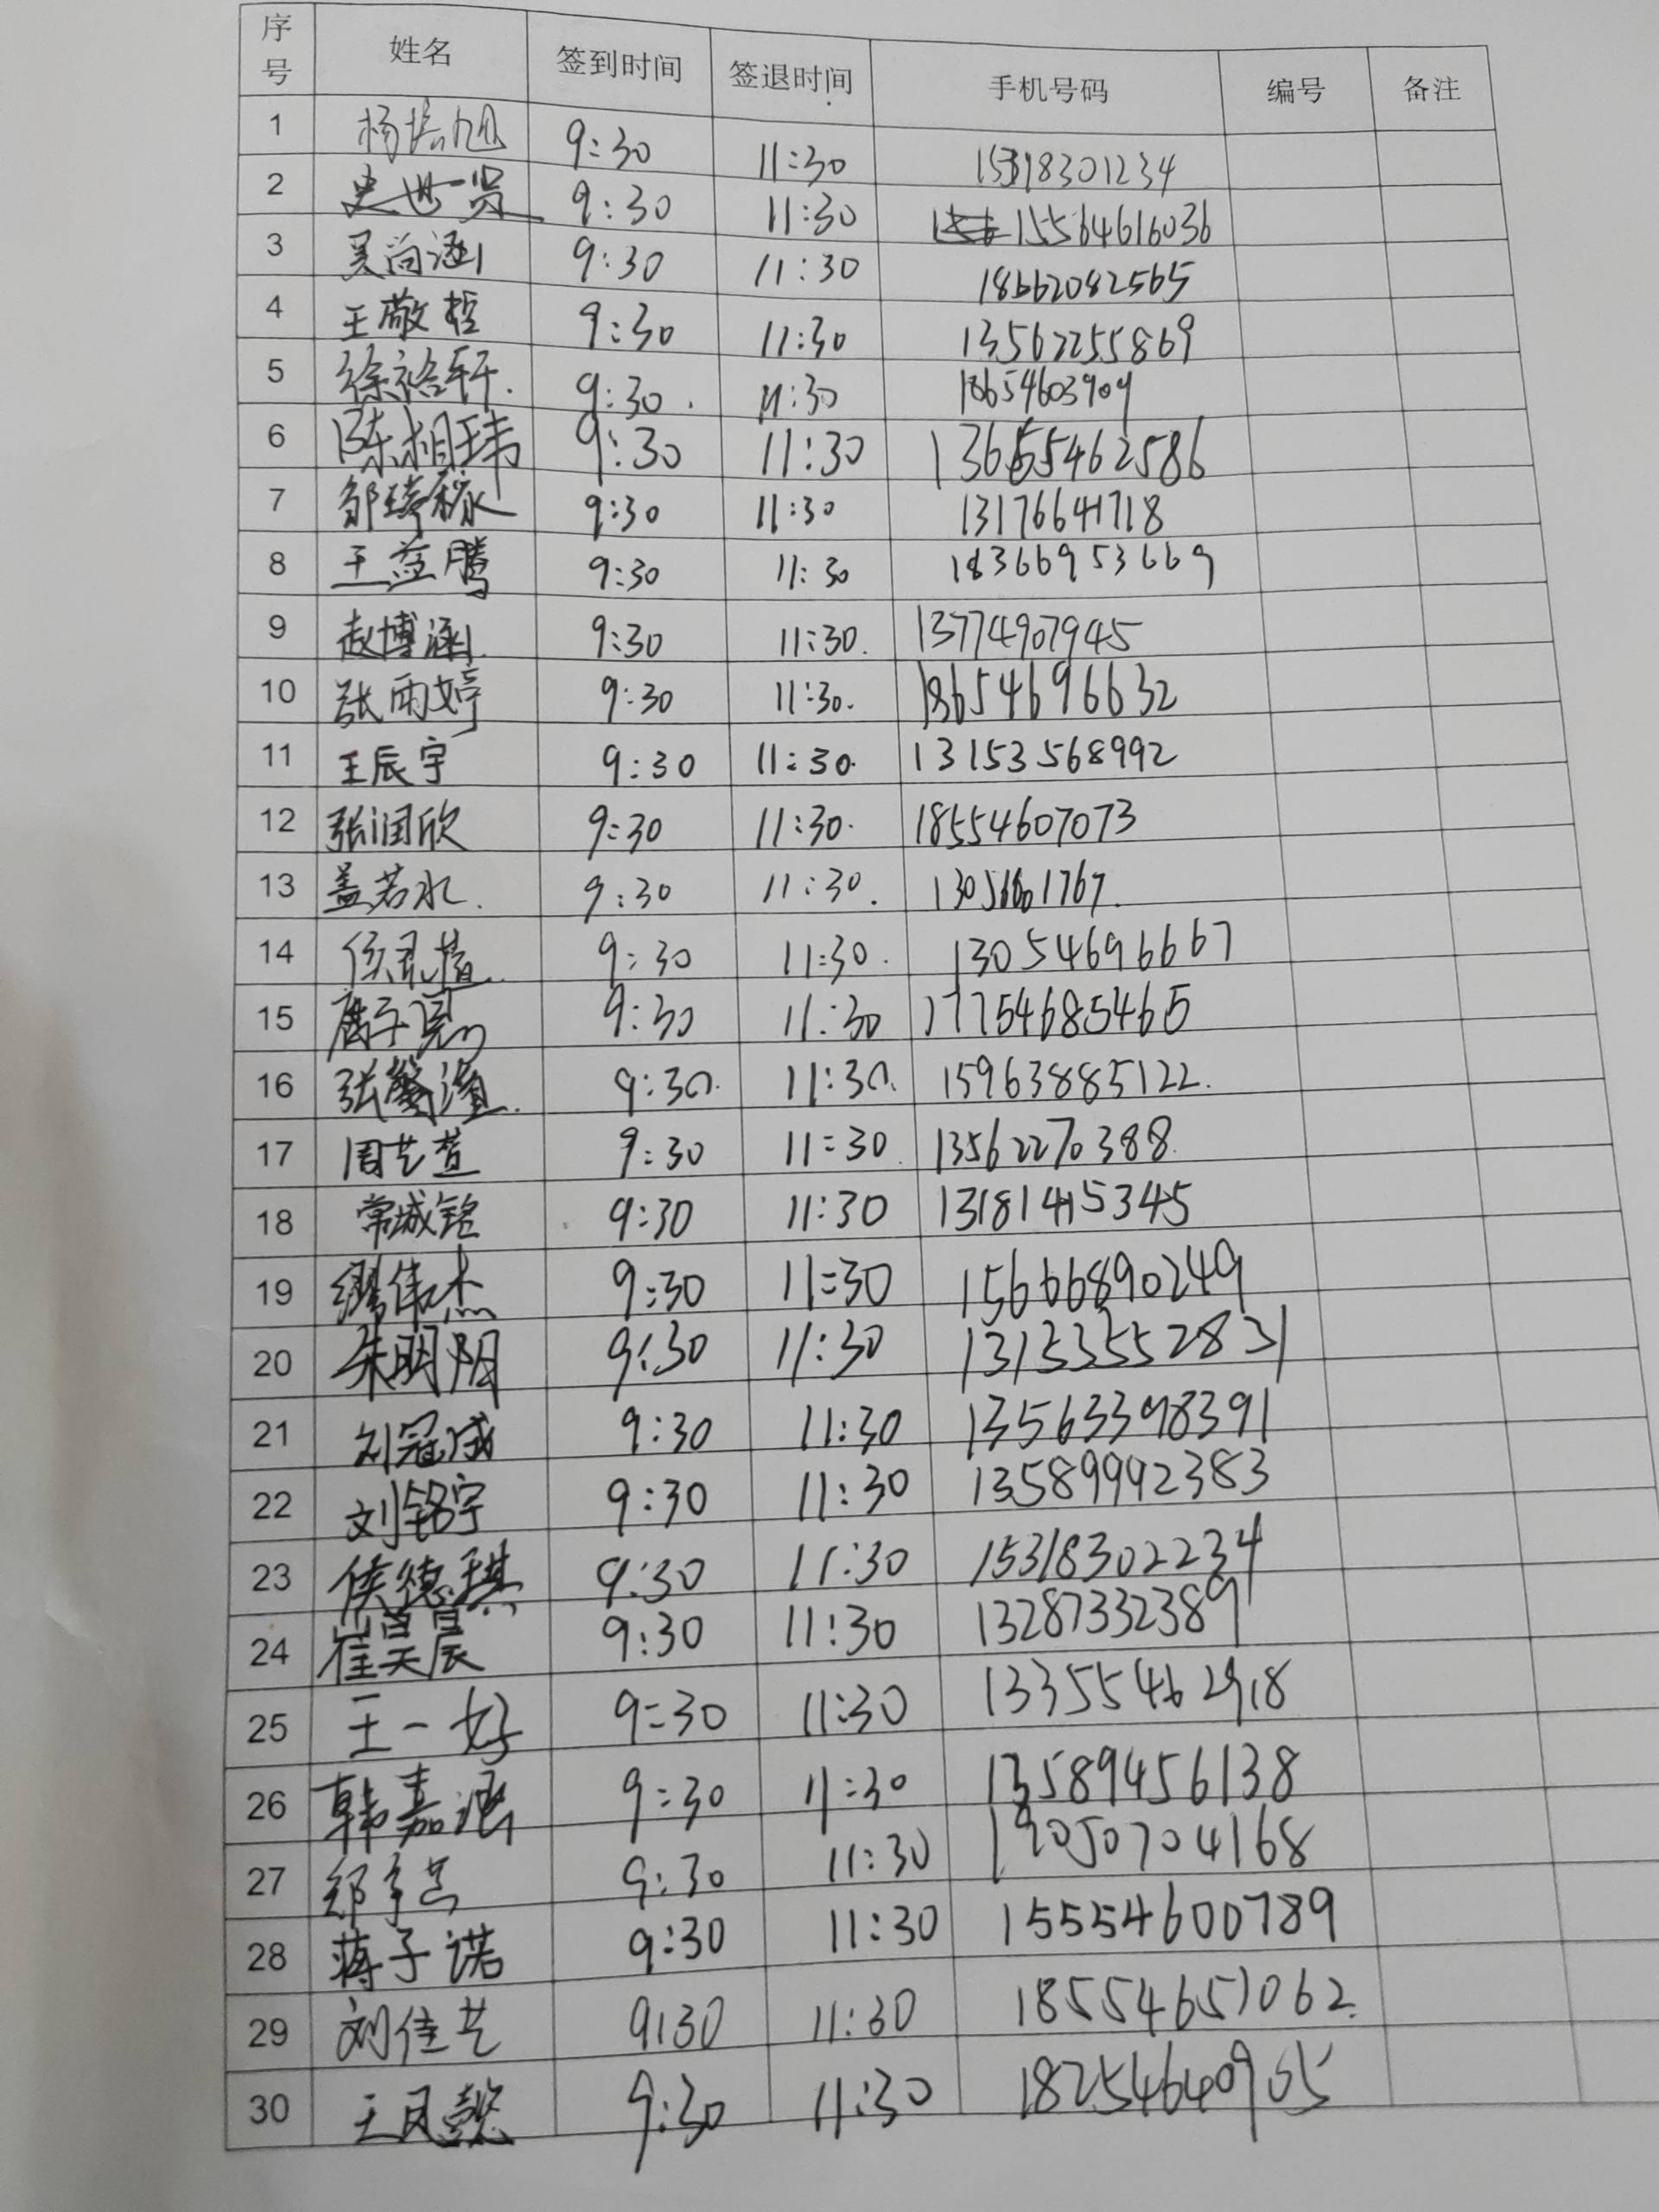 序号 姓名 签到时间 签退时间 手机号码 编号 备注
1 杨振旭 9:30 11:30 15318301234
2 史世贤 9:30 11:30 15564616036
3 吴尚涵 9:30 11:30 18662082565
4 王敬哲 9:30 11:30 13562255869
5 徐裕轩. 9:30. 11:30 18654603909
6 陈相玮 9:30 11:30 13655462586
7 邹琦稼 9:30 11:30 13176641718
8 王益腾 9:30 11:30 18366953669
9 赵博涵. 9:30 11:30. 13774907945
10 张雨婷 9:30 11:30. 18654696632
11 王辰宇 9:30 11:30. 13153568992
12 张润欣 9:30 11:30. 18554607073
13 盖若水. 9:30 11:30.
14 9:30 11:30. 13054696667
15 9:30 11:30 17754685465
16 张 9:30. 11:30. 15963885122.
17 周艺萱 9:30 11:30. 13562270388.
18 常城铭 9:30 11:30 13181415345
19 伟杰 9:30 11:30 15666890249
20 朱明阳 9:30 11:30 13153552831
21 刘冠成 9:30 11:30 13563398391
22 刘铭宇 9:30 11:30 13589992383
23 侯德琪 9:30 11:30 15318302234
24 崔昊晨 9:30 11:30 13287332389
25 王一好 9:30 11:30 13355462918
26 韩嘉涵 9:30 11:30 13589456138
27 9:30 11:30
28 蒋子诺 9:30 11:30 15554600789
29 刘佳艺 9:30 11:30 18554651062.
30 王凤懿 9:30 11:30 18254640905